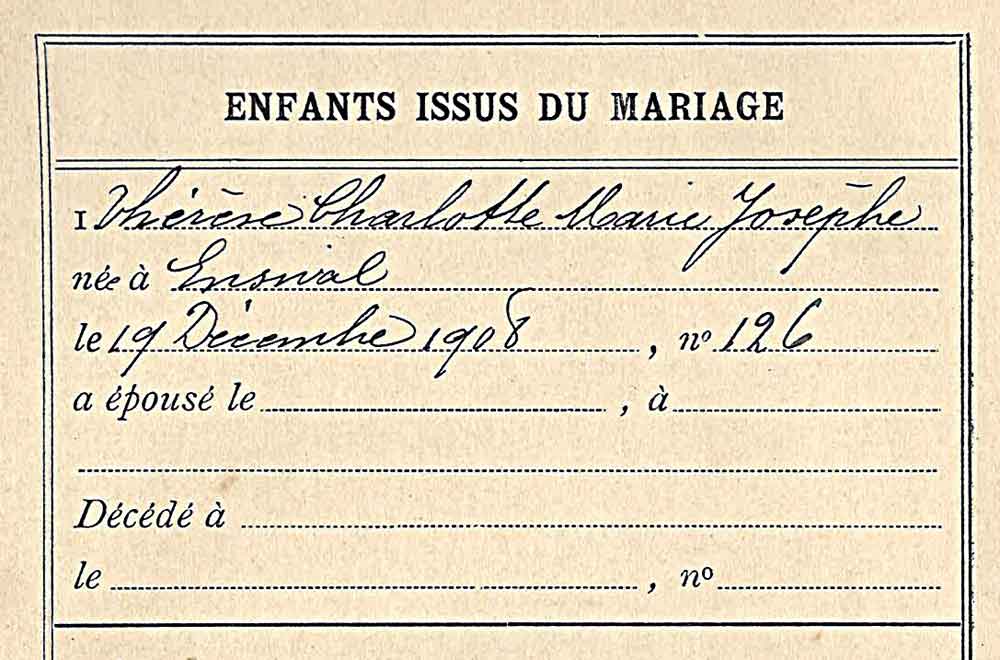 ENFANTS ISSUS DU MARIAGE
I Thérèse Charlotte Marie Josèphe
née à Ensival
le 19 Décembre 1908, nº 126
a épousé le , à
Décédé à
le , nº